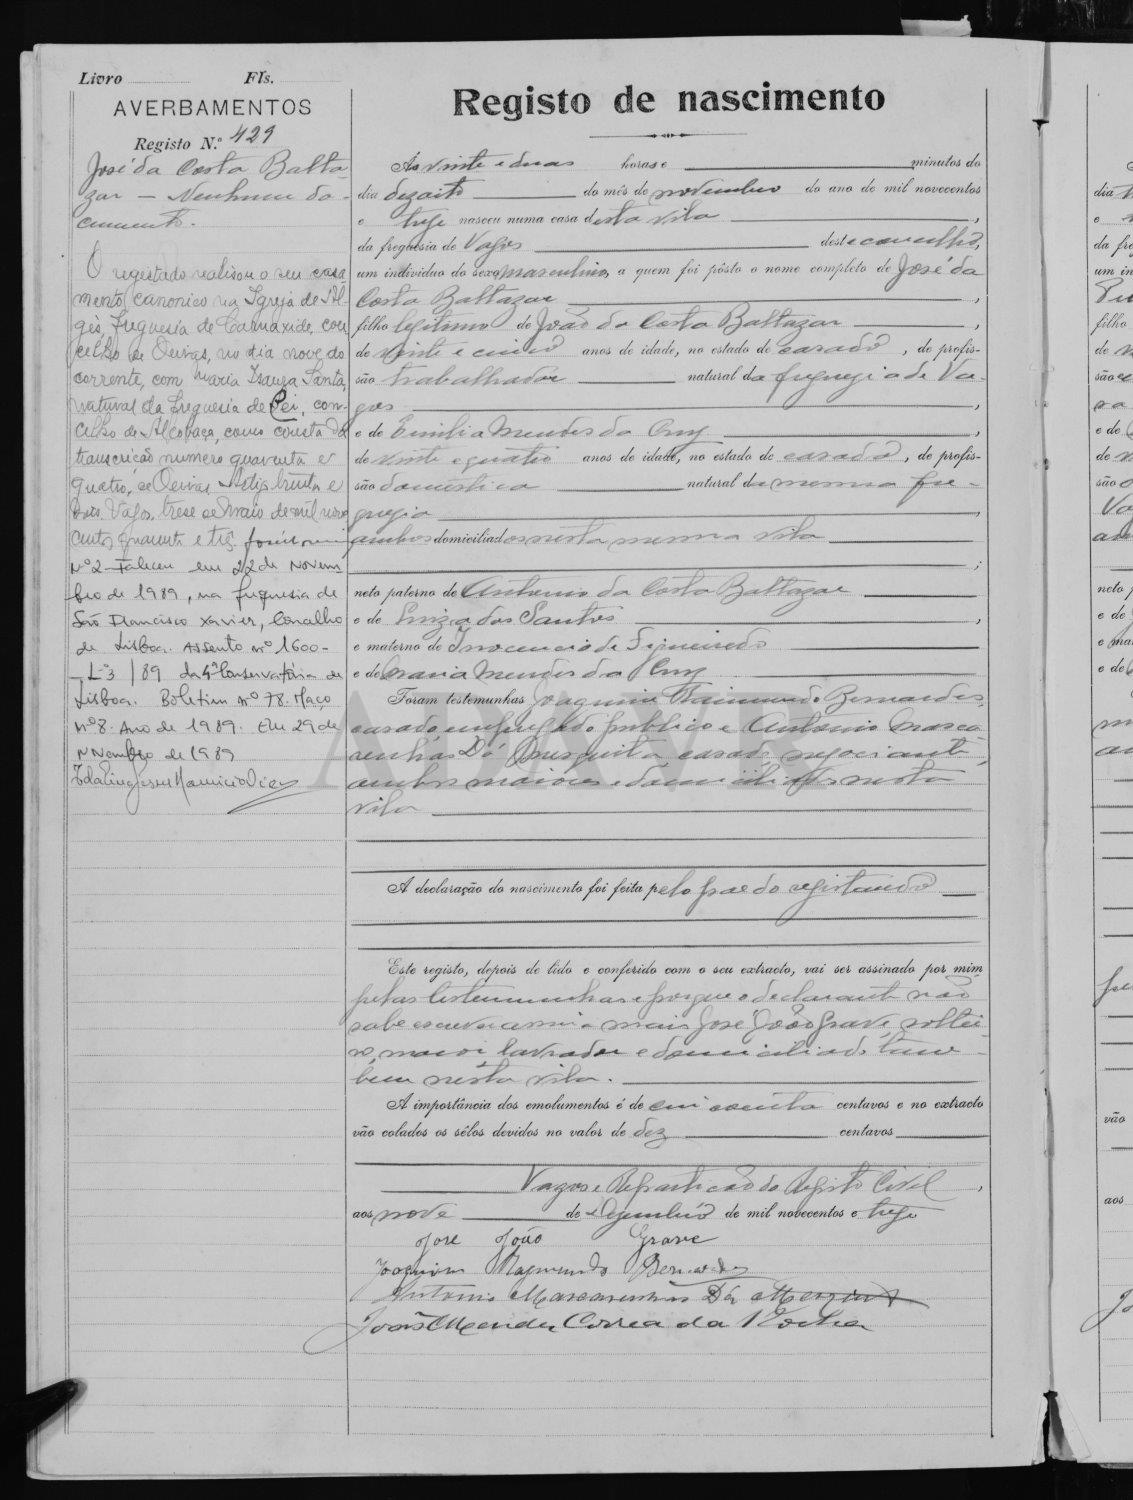 Livro Fls.
AVERBAMENTOS
Registo N.º 429
José da Costa Balta-
zar — Nenhum do-
cumento.
O registado realisou o seu casa-
mento canonico na Igreja de Al-
gés, freguesia de Carnaxide, con-
celho de Oeiras, no dia nove do
corrente, com Maria Isaura Santa,
natural da freguesia de Pei, con-
celho de Alcobaça, como consta da
transcrição numero quarenta e
quatro, de Oeiras trinta e
dois. Vagos, treze de Maio de mil nove
centos quarenta e tres.
Nº 2 - Faleceu em 22 de Novem-
bro de 1989, na freguesia de
São Francisco Xavier, Concelho
de Lisboa. Assento nº 1600 -
L-3 / 89 da 4ª Conservatória de
Lisboa. Boletim nº 78. Maço
nº 8. Ano de 1989. Em 29 de
Novembro de 1989
Registo de nascimento
Ás vinte e duas horas e minutos do
dia dezoito do mês de novembro do ano de mil novecentos
e treze nasceu numa casa desta vila ,
da freguesia de Vagos deste concelho,
um individuo do sexo masculino, a quem foi pôsto o nome completo de José da
Costa Baltazar ,
filho legitimo de João da Costa Baltazar ,
de vinte e cinco anos de idade, no estado de casado , de profis-
são trabalhador natural da freguezia de Va-
gos ,
e de Emilia Mendes da Cruz ,
de vinte e quatro anos de idade, no estado de casada , de profis-
são domestica natural da mesma fre-
guezia ,
ambos domiciliados nesta mesma vila ;
neto paterno de Antonio da Costa Baltazar
e de Luiza dos Santos ,
e materno de Inocencio de Figueiredo
e de Maria Mendes da Cruz
Foram testemunhas Joaquim Raimundo Bernardes,
casado, empregado publico e Antonio Masca-
renhas Dá Mesquita, casado, negociante,
ambos maiores e domiciliados nesta
vila
A declaração do nascimento foi feita pelo pae do registando
Este registo, depois de lido e conferido com o seu extracto, vai ser assinado por mim
pelas testemunhas e porque o declarante não
sabe escrever assina mais José João Grave, soltei-
ro, maior, lavrador e domiciliado tam-
bem nesta vila.
A importância dos emolumentos é de cincoenta centavos e no extracto
vão colados os sêlos devidos no valor de dez centavos
Vagos e Repartição do Registo Civil ,
aos nove de Dezembro de mil novecentos e treze
José João Grave
Joaquim Raymundo Bernardes
Antonio Mascarenhas Dá Mesquita
João Mendes Correa da Rocha